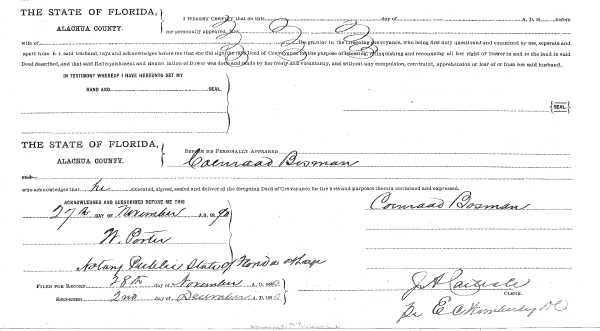 THE STATE OF FLORIDA,
ALACHUA COUNTY.
I HEREBY CERTIFY that on this day of A. D. 18 before
me personally appeared, Mrs. the grantor in the foregoing conveyance, who being first duly questioned and examined by me, separate and
wife of
apart from h r said husband, says and acknowledges before me that she did sign the said Deed of Conveyance for the purpose of relinquishing and renouncing all her right of Dower in and to the land in said
Deed described, and that said Relinquishment and Renunciation of Dower was done and made by her freely and voluntarily, and without any compulsion, constraint, apprehension or fear of or from her said husband.
IN TESTIMONY WHEREOF I HAVE HEREUNTO SET MY
HAND AND SEAL.
SEAL.
THE STATE OF FLORIDA,
ALACHUA COUNTY.
BEFORE ME PERSONALLY APPEARED
Coenraad Bosman
and
who acknowledges that he executed, signed, sealed and deliver ed the foregoing Deed of Conveyance for the uses and purposes therein contained and expressed.
ACKNOWLEDGED AND SUBSCRIBED BEFORE ME THIS
27th DAY OF November A. D. 18 90
Coenraad Bosman
W. Porter
Notary Public State of Florida at large
FILED FOR RECORD 28th day of November A. D. 18
RECORDED 2nd day of December A. D. 18
J A Carlisle
CLERK.
Pr E C Wimberly DC